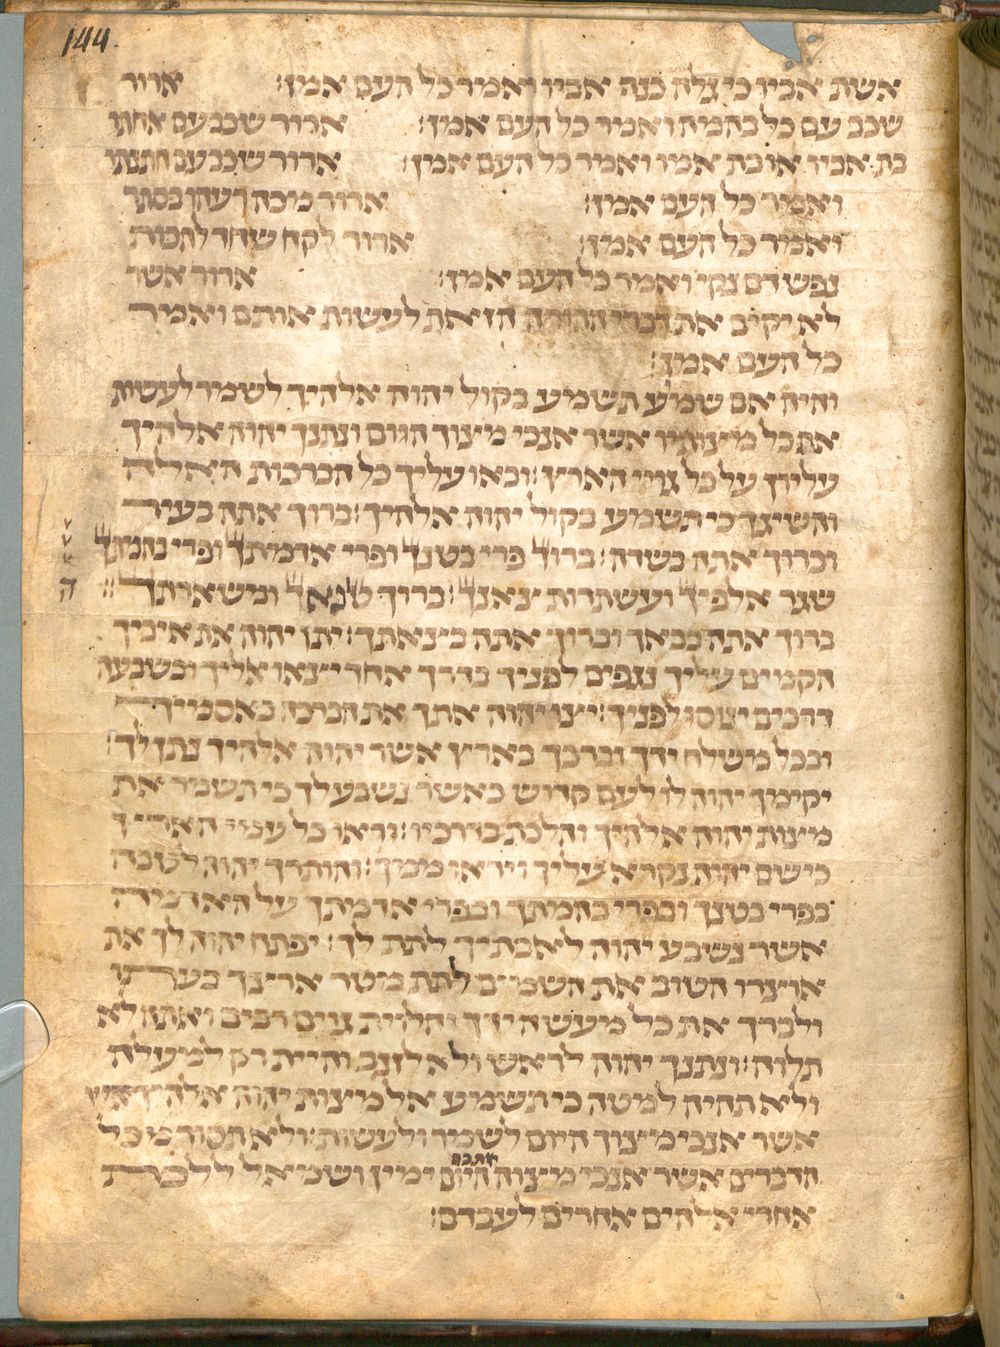 144.
אשת אביו כי גלה כנף אביו ואמר כל העם אמן: ארור
שכב עם כל בהמה ואמר כל העם אמן: ארור שכב עם אחתו
בת אביו או בת אמו ואמר כל העם אמן: ארור שכב עם חתנתו
ואמר כל העם אמן: ארור מכה רעהו בסתר
ואמר כל העם אמן: ארור לקח שחד להכות
נפש דם נקי ואמר כל העם אמן: ארור אשר
לא יקים את דברי התורה הזאת לעשות אותם ואמר
כל העם אמן:
והיה אם שמע תשמע בקול יהוה אלהיך לשמר לעשות
את כל מצותיו אשר אנכי מצוך היום ונתנך יהוה אלהיך
עליון על כל גויי הארץ: ובאו עליך כל הברכות האלה
והשיגך כי תשמע בקול יהוה אלהיך: ברוך אתה בעיר
וברוך אתה בשדה: ברוך פרי בטנך ופרי אדמתך ופרי בהמתך
שגר אלפיך ועשתרות צאנך: ברוך טנאך ומשארתך:
ברוך אתה בבאך וברוך אתה בצאתך: יתן יהוה את איביך
הקמים עליך נגפים לפניך בדרך אחד יצאו אליך ובשבעה
דרכים ינוסו לפניך: יצו יהוה אתך את הברכה באסמיך
ובכל משלח ידך וברכך בארץ אשר יהוה אלהיך נתן לך:
יקימך יהוה לו לעם קדוש כאשר נשבע לך כי תשמר את
מצות יהוה אלהיך והלכת בדרכיו: וראו כל עמי הארץ
כי שם יהוה נקרא עליך ויראו ממך: והותרך יהוה לטובה
בפרי בטנך ובפרי בהמתך ובפרי אדמתך על האדמה
אשר נשבע יהוה לאבתיך לתת לך: יפתח יהוה לך את
אוצרו הטוב את השמים לתת מטר ארצך בעתו
ולברך את כל מעשה ידך והלוית גוים רבים ואתה לא
תלוה: ונתנך יהוה לראש ולא לזנב והיית רק למעלה
ולא תהיה למטה כי תשמע אל מצות יהוה אלהיך אשר
אשר אנכי מצוך היום לשמר ולעשות: ולא תסור מכל
הדברים אשר אנכי מצוה אתכם היום ימין ושמאל ללכת
אחרי אלהים אחרים לעבדם:
ה